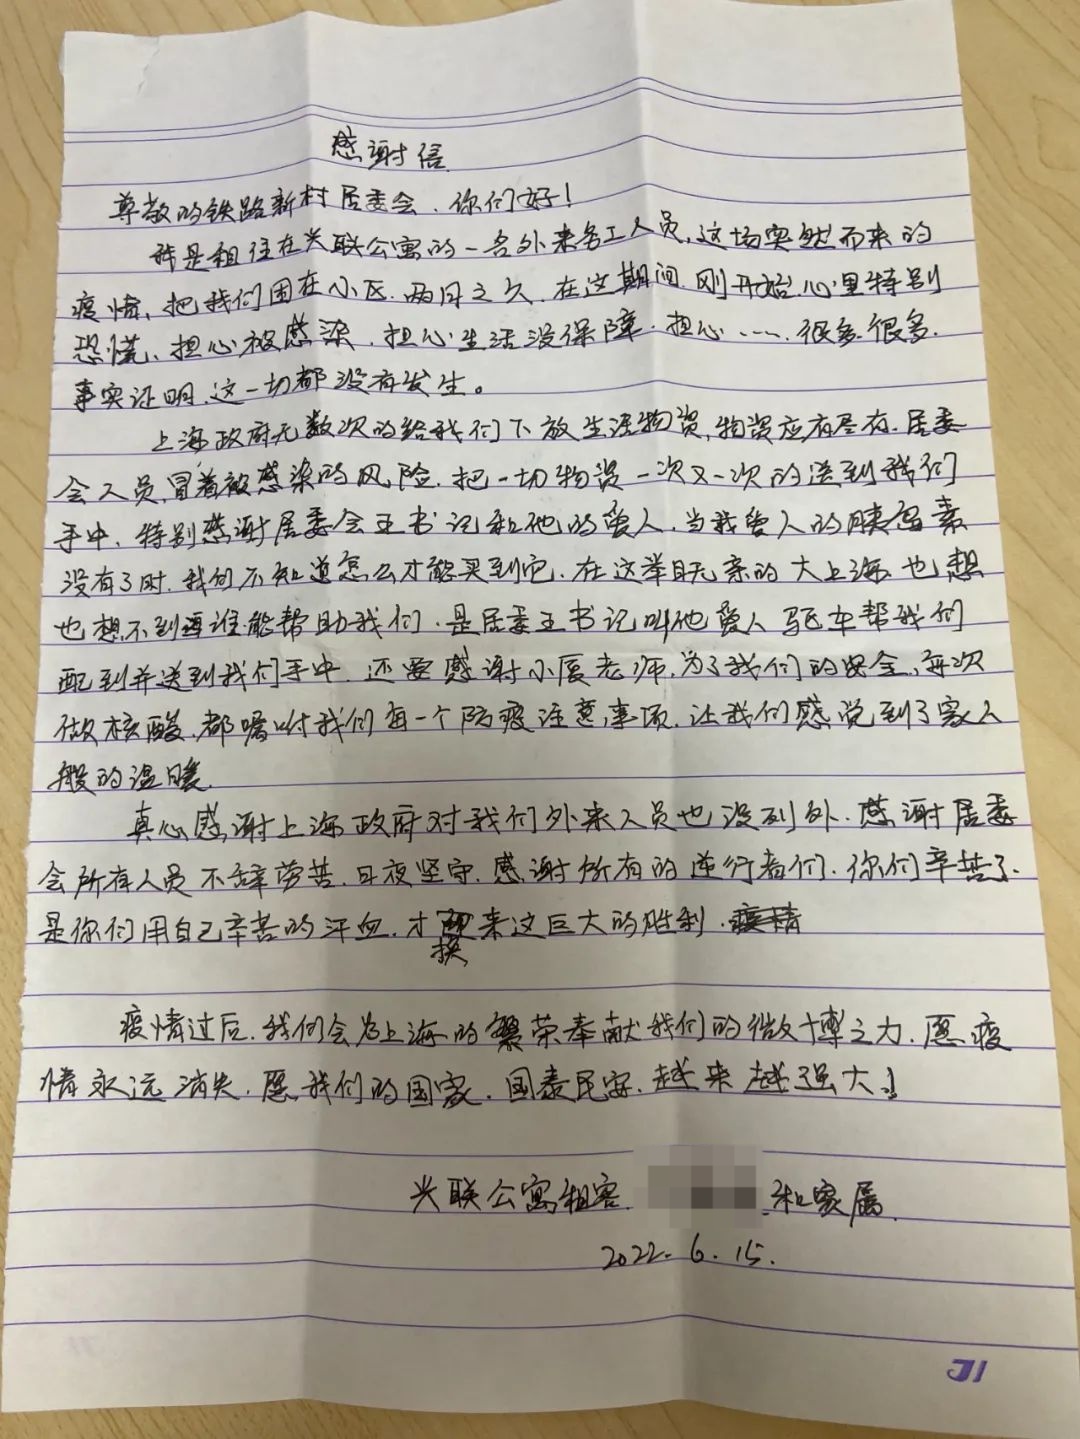 感谢信
尊敬的铁路新村居委会、你们好！
我是租住在兴联公寓的一名外来务工人员,这场突然而来的
疫情,把我们困在小区.两月之久.在这期间.刚开始.心里特别
恐慌、担心被感染.担心生活没保障.担心……很多.很多.
事实证明.这一切都没有发生。
上海政府无数次的给我们下放生活物资,物资应有尽有.居委
会人员,冒着被感染的风险.把一切物资一次又一次的送到我们
手中、特别感谢居委会王书记和他的爱人.当我爱人的胰岛素
没有了时.我们不知道怎么才能买到它.在这举目无亲的大上海.也想
也想不到谁能帮助我们.是居委王书记叫他爱人驱车帮我们
配到并送到我们手中.还要感谢小厦老师.为了我们的安全,每次
做核酸.都嘱咐我们每一个防疫注意事项.让我们感觉到了家人
般的温暖.
真心感谢上海政府对我们外来人员也没列外.感谢居委
会所有人员不辞劳苦.日夜坚守.感谢所有的逆行者们.你们辛苦了.
是你们用自己辛苦的汗血.才换来这巨大的胜利.
疫情过后.我们会为上海的繁荣奉献我们的微博之力.愿疫
情永远消失.愿我们的国家.国泰民安.越来越强大！
兴联公寓租客 和家属.
2022.6.15.
71